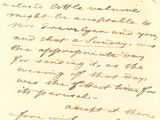 a closed little volume
might be acceptable to
my and you,
and that a Sunday, was
the appropriate day
for sending it, as the
evening of that day
was the fittest time for
its perusal.
accept it then